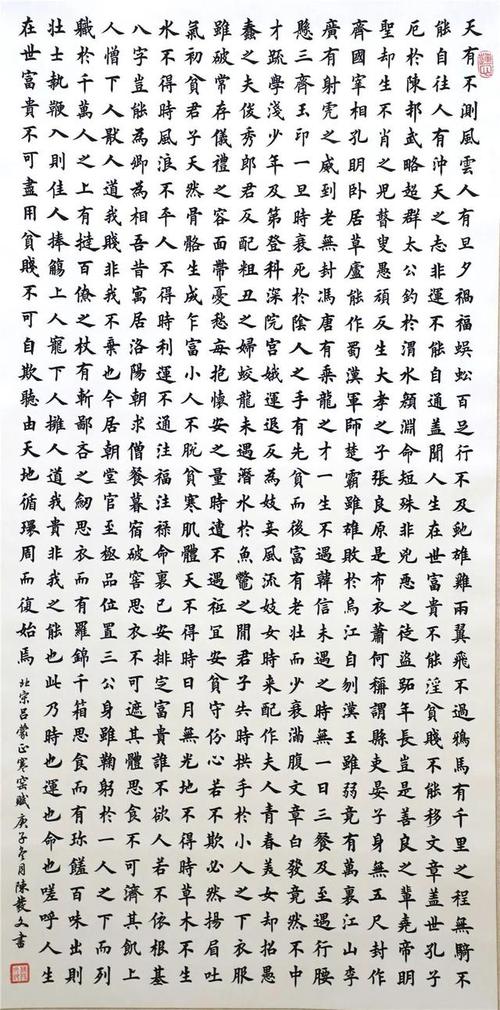 天有不測風雲人有旦夕禍福蜈蚣百足行不及虵雄雞兩翼飛不過鴉馬有千里之程無騎不
能自往人有沖天之志非運不能自通盖聞人生在世富貴不能淫貧賤不能移文章盖世孔子
厄於陳邦武略超群太公釣於渭水顏淵命短殊非兇惡之徒盜跖年長豈是善良之輩堯帝明
聖却生不肖之兒瞽叟愚頑反生大孝之子張良原是布衣蕭何稱謂縣吏晏子身無五尺封作
齊國宰相孔明卧居草廬能作蜀漢軍師楚霸雖雄敗於烏江自刎漢王雖弱竟有萬裏江山李
廣有射虎之威到老無封馮唐有乘龍之才一生不遇韓信未遇之時無一日三餐及至遇行腰
懸三齊玉印一旦時衰死於陰人之手有先貧而後富有老壯而少衰滿腹文章白發竟然不中
才疏學淺少年及第登科深院宮娥運退反為妓妾風流妓女時來配作夫人青春美女却招愚
蠢之夫俊秀郎君反配粗丑之婦蛟龍未遇潛水於魚鱉之間君子失時拱手於小人之下衣服
雖破常存儀禮之容面帶憂愁每抱懷安之量時遭不遇秪宜安貧守份心若不欺必然揚眉吐
氣初貧君子天然骨骼生成乍富小人不脫貧寒肌體天不得時日月無光地不得時草木不生
水不得時風浪不平人不得時利運不通注福注禄命裏已安排定富貴誰不欲人若不依根基
八字豈能為卿為相吾昔寓居洛陽朝求僧餐暮宿破窰思衣不可遮其體思食不可濟其飢上
人憎下人猒人道我賤非我不棄也今居朝堂官至極品位置三公身雖鞠躬於一人之下而列
職於千萬人之上有撻百僚之杖有斬鄙吝之劍思衣而有羅錦千箱思食而有珎饈百味出則
壯士執鞭入則佳人捧觴上人寵下人擁人道我貴非我之能也此乃時也運也命也嗟呼人生
在世富貴不可盡用貧賤不可自欺聽由天地循環周而復始焉
北宗呂蒙正寒窑賦庚子冬月陳發文書